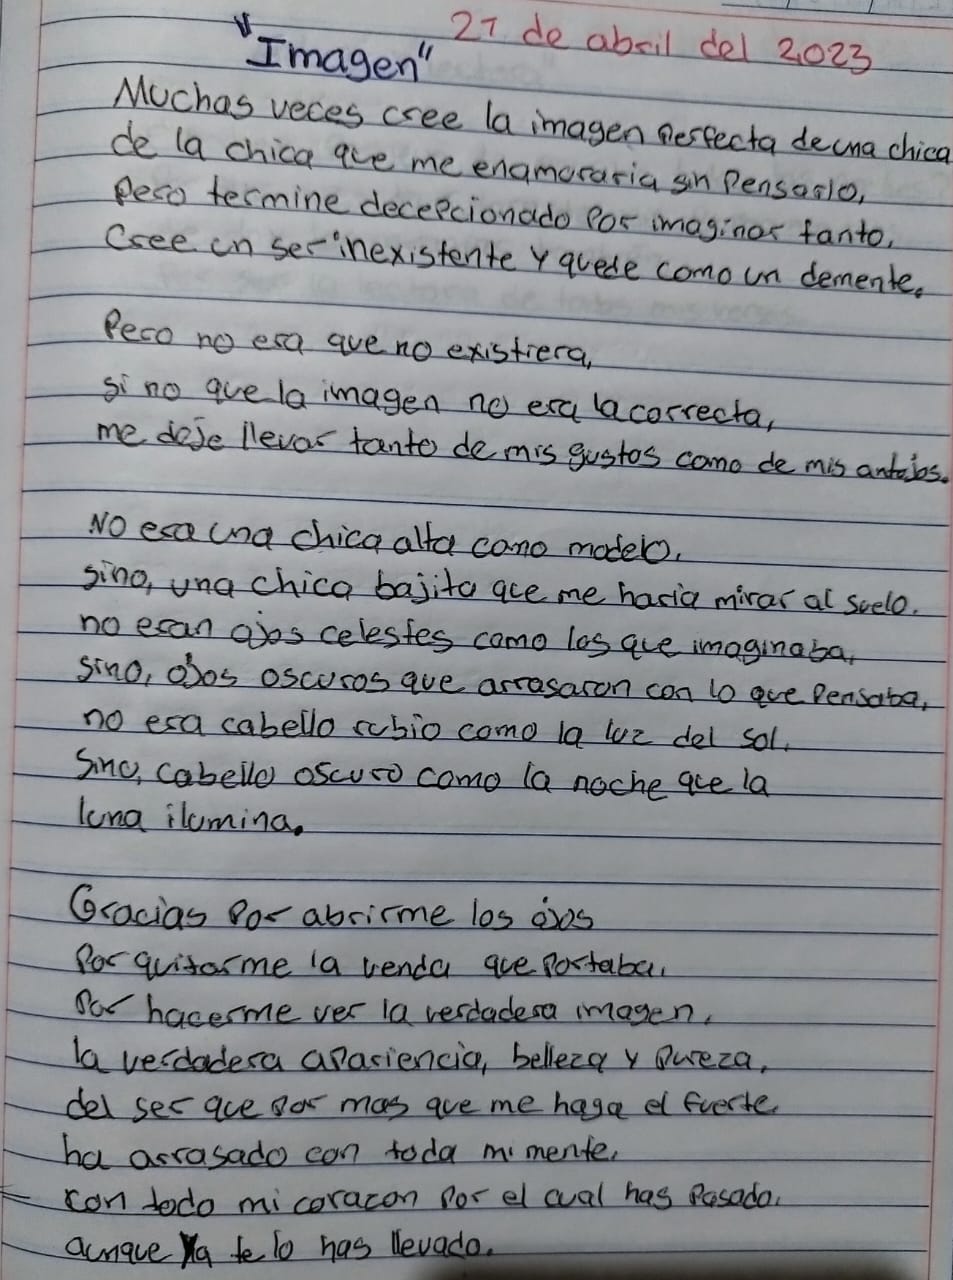 21 de abril del 2023
"Imagen"
Muchas veces cree la imagen perfecta de una chica
de la chica que me enamoraria sin pensarlo,
pero termine decepcionado por imaginar tanto,
Cree un ser inexistente y quede como un demente.
Pero no era que no existiera,
si no que la imagen no era la correcta,
me deje llevar tanto de mis gustos como de mis antojos.
No era una chica alta como modelo,
sino, una chica bajita que me hacia mirar al suelo.
no eran ojos celestes como los que imaginaba,
sino, ojos oscuros que arrasaron con lo que pensaba,
no era cabello rubio como la luz del sol,
Sino, cabello oscuro como la noche que la
luna ilumina.
Gracias por abrirme los ojos
Por quitarme la venda que portaba,
Por hacerme ver la verdadera imagen,
la verdadera apariencia, belleza y pureza,
del ser que por mas que me haga el fuerte
ha arrasado con toda mi mente,
con todo mi corazon por el cual has pasado,
aunque ya te lo has llevado.